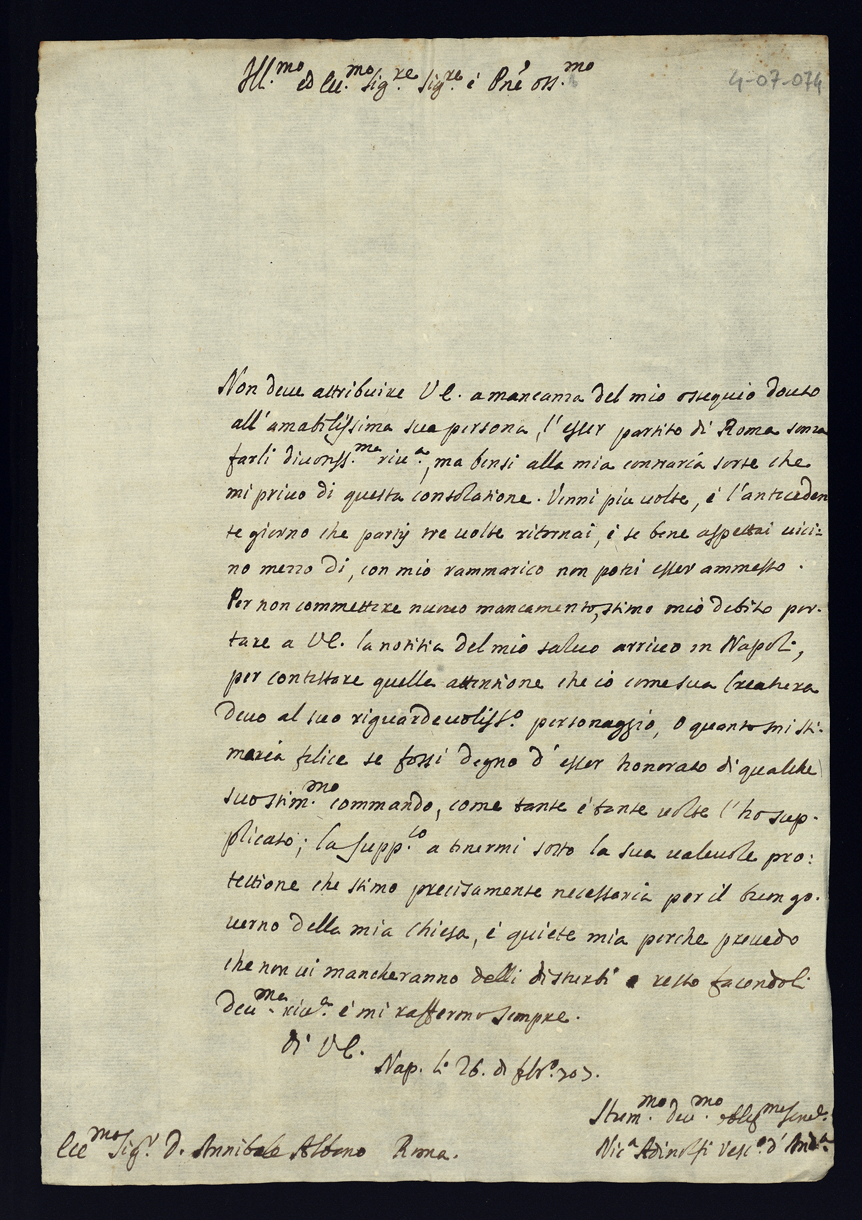 Ill.mo ed Ecc.mo Sig.re Sig.re e Pne oss.mo
4-07-074
Non deve attribuire V E. a mancanza del mio ossequio douto
all'amabilissima sua persona, l'esser partito di Roma senza
farli divotiss.ma riu.a, ma bensi alla mia contraria sorte che
mi privo di questa consolatione. Venni piu volte, e l'anteceden
te giorno che partij tre volte ritornai, e se bene aspettai vici=
no mezzo di, con mio rammarico non potei esser ammesso.
Per non commettere nuovo mancamento, stimo mio debito por-
tare a VE. la notitia del mio salvo arrivo in Napoli,
per contestare quella attentione che io come sua Creatura
devo al suo riguardevoliss.o personaggio, o quanto mi sti-
maria felice se fossi degno d'esser honorato di qualche
suo stim.mo commando, come tante e tante volte l'ho sup-
plicato; la supp.co a tinermi sotto la sua valevole pro:
tettione che stimo precisamente necessaria per il buon go-
verno della mia Chiesa, e quiete mia perche prevedo
che non vi mancheranno delli disturbi e resto facendoli
deu.ma riu.a e mi raffermo sempre.
di VE.
Nap. li 26. di fbr.o 703.
deu.mo oblig.mo
Ecc.mo Sig.r D. Annibale Albano Roma.
Nic.a Adinolfi Vesc.o d'And.a